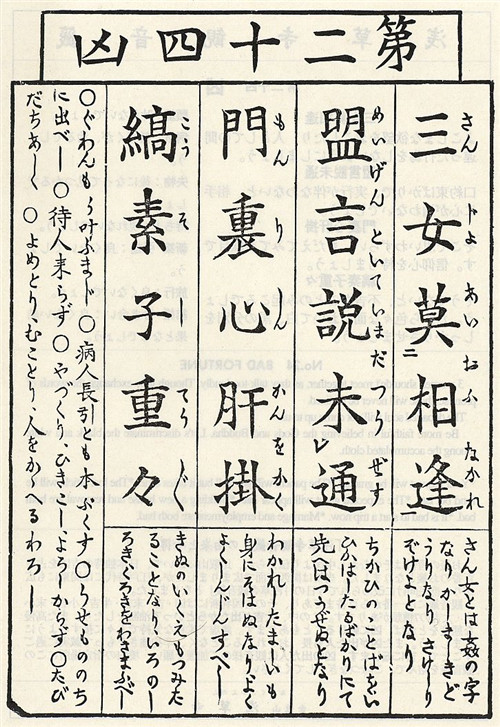 第二十四凶
三女莫二相逢
さんじよあいおふなかれ
盟言説未レ通
めいげんといていまだつうぜず
門裏心肝掛
もんりしんかんをかく
縞素子重々
こうそ
さん女とは姦の字
ぞけよとなり
ちかひのことばをい
ひかはしたるばかりにて
先へはつうぜぬとなり
身にそはぬなりよく
しんじんすべし
るごとくなりいろのし
ろきくろきをわきまふべし
○ぐわんもう叶ふまじ ○病人長引とも本ぶくす ○うせものゝち
に出べし ○待人来らず ○やづくりひきこしよろからず ○たび
だちあしく ○よめとりむことり人をかゝへるわろし